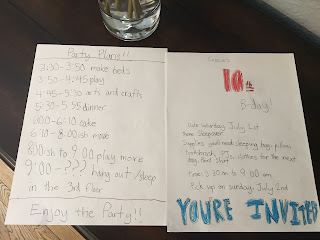 Party Plans!!
3:30-3:50 make beds
3:50-4:45 play
4:45-5:30 arts and crafts
5:30-5:55 dinner
6:00-6:10 cake
6:10-8:00ish movie
8:00ish to 9:00 play more
9:00-??? hang out/sleep
in the 3rd floor
Enjoy the Party!!
10th
B-day!
Date: Saturday, July 1st
Theme: Sleepover
Supplies you'll need: sleeping bag, pillows,
toothbrush, PJ's, clothes for the next
day, and
Time: 3:30 to 9:00 am
Pick up on sunday, July 2nd
YOU'RE INVITED